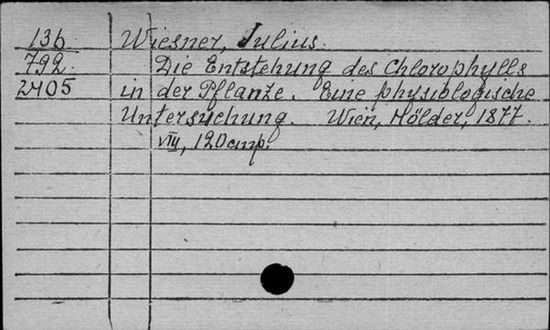 136 Wiesner, Julius.
792 Die Entstehung des Chlorophylls
2405 in der Pflanze. Eine physiologische
Untersuchung. Wien, Hölder, 1877.
VIII, 120 cmp.